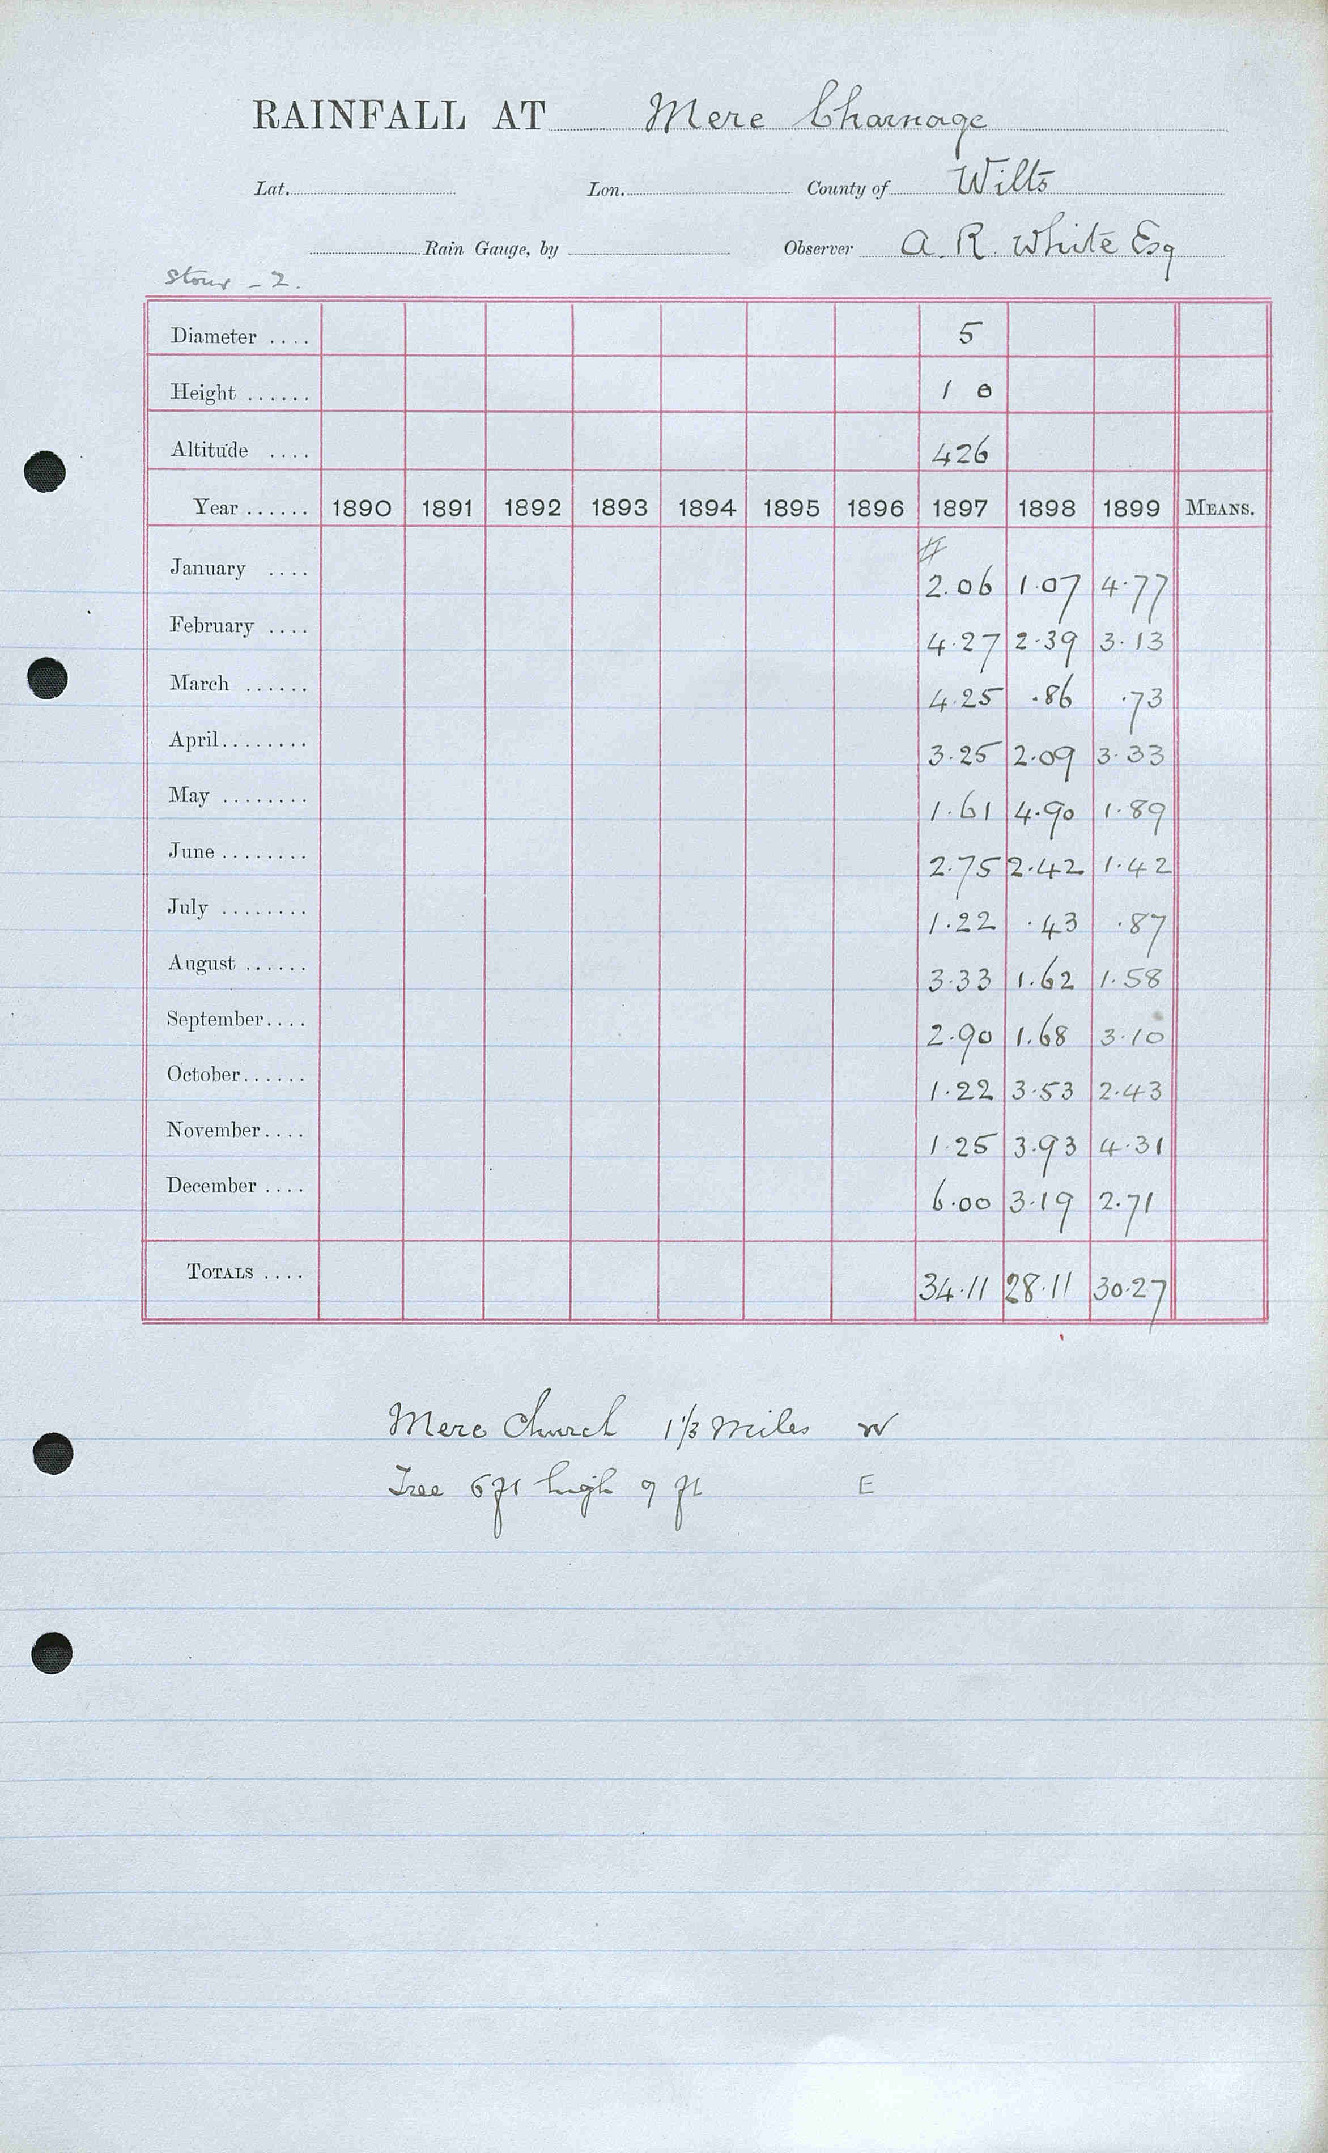 RAINFALL AT Mere Charnage
Lat. Lon. County of Wilts
Rain Gauge, by Observer A. R. White Esq
Stour - 2.
Diameter .... 5
Height ...... 1 0
Altitude .... 426
Year ...... 1890 1891 1892 1893 1894 1895 1896 1897 1898 1899 MEANS.
#
January .... 2.06 1.07 4.77
February .... 4.27 2.39 3.13
March ...... 4.25 .86 .73
April........ 3.25 2.09 3.33
May ........ 1.61 4.90 1.89
June ........ 2.75 2.42 1.42
July ........ 1.22 .43 .87
August ...... 3.33 1.62 1.58
September.... 2.90 1.68 3.10
October...... 1.22 3.53 2.43
November.... 1.25 3.93 4.31
December .... 6.00 3.19 2.71
TOTALS .... 34.11 28.11 30.27
Mere Church 1 1/3 miles W
Tree 6 ft high 9 ft E